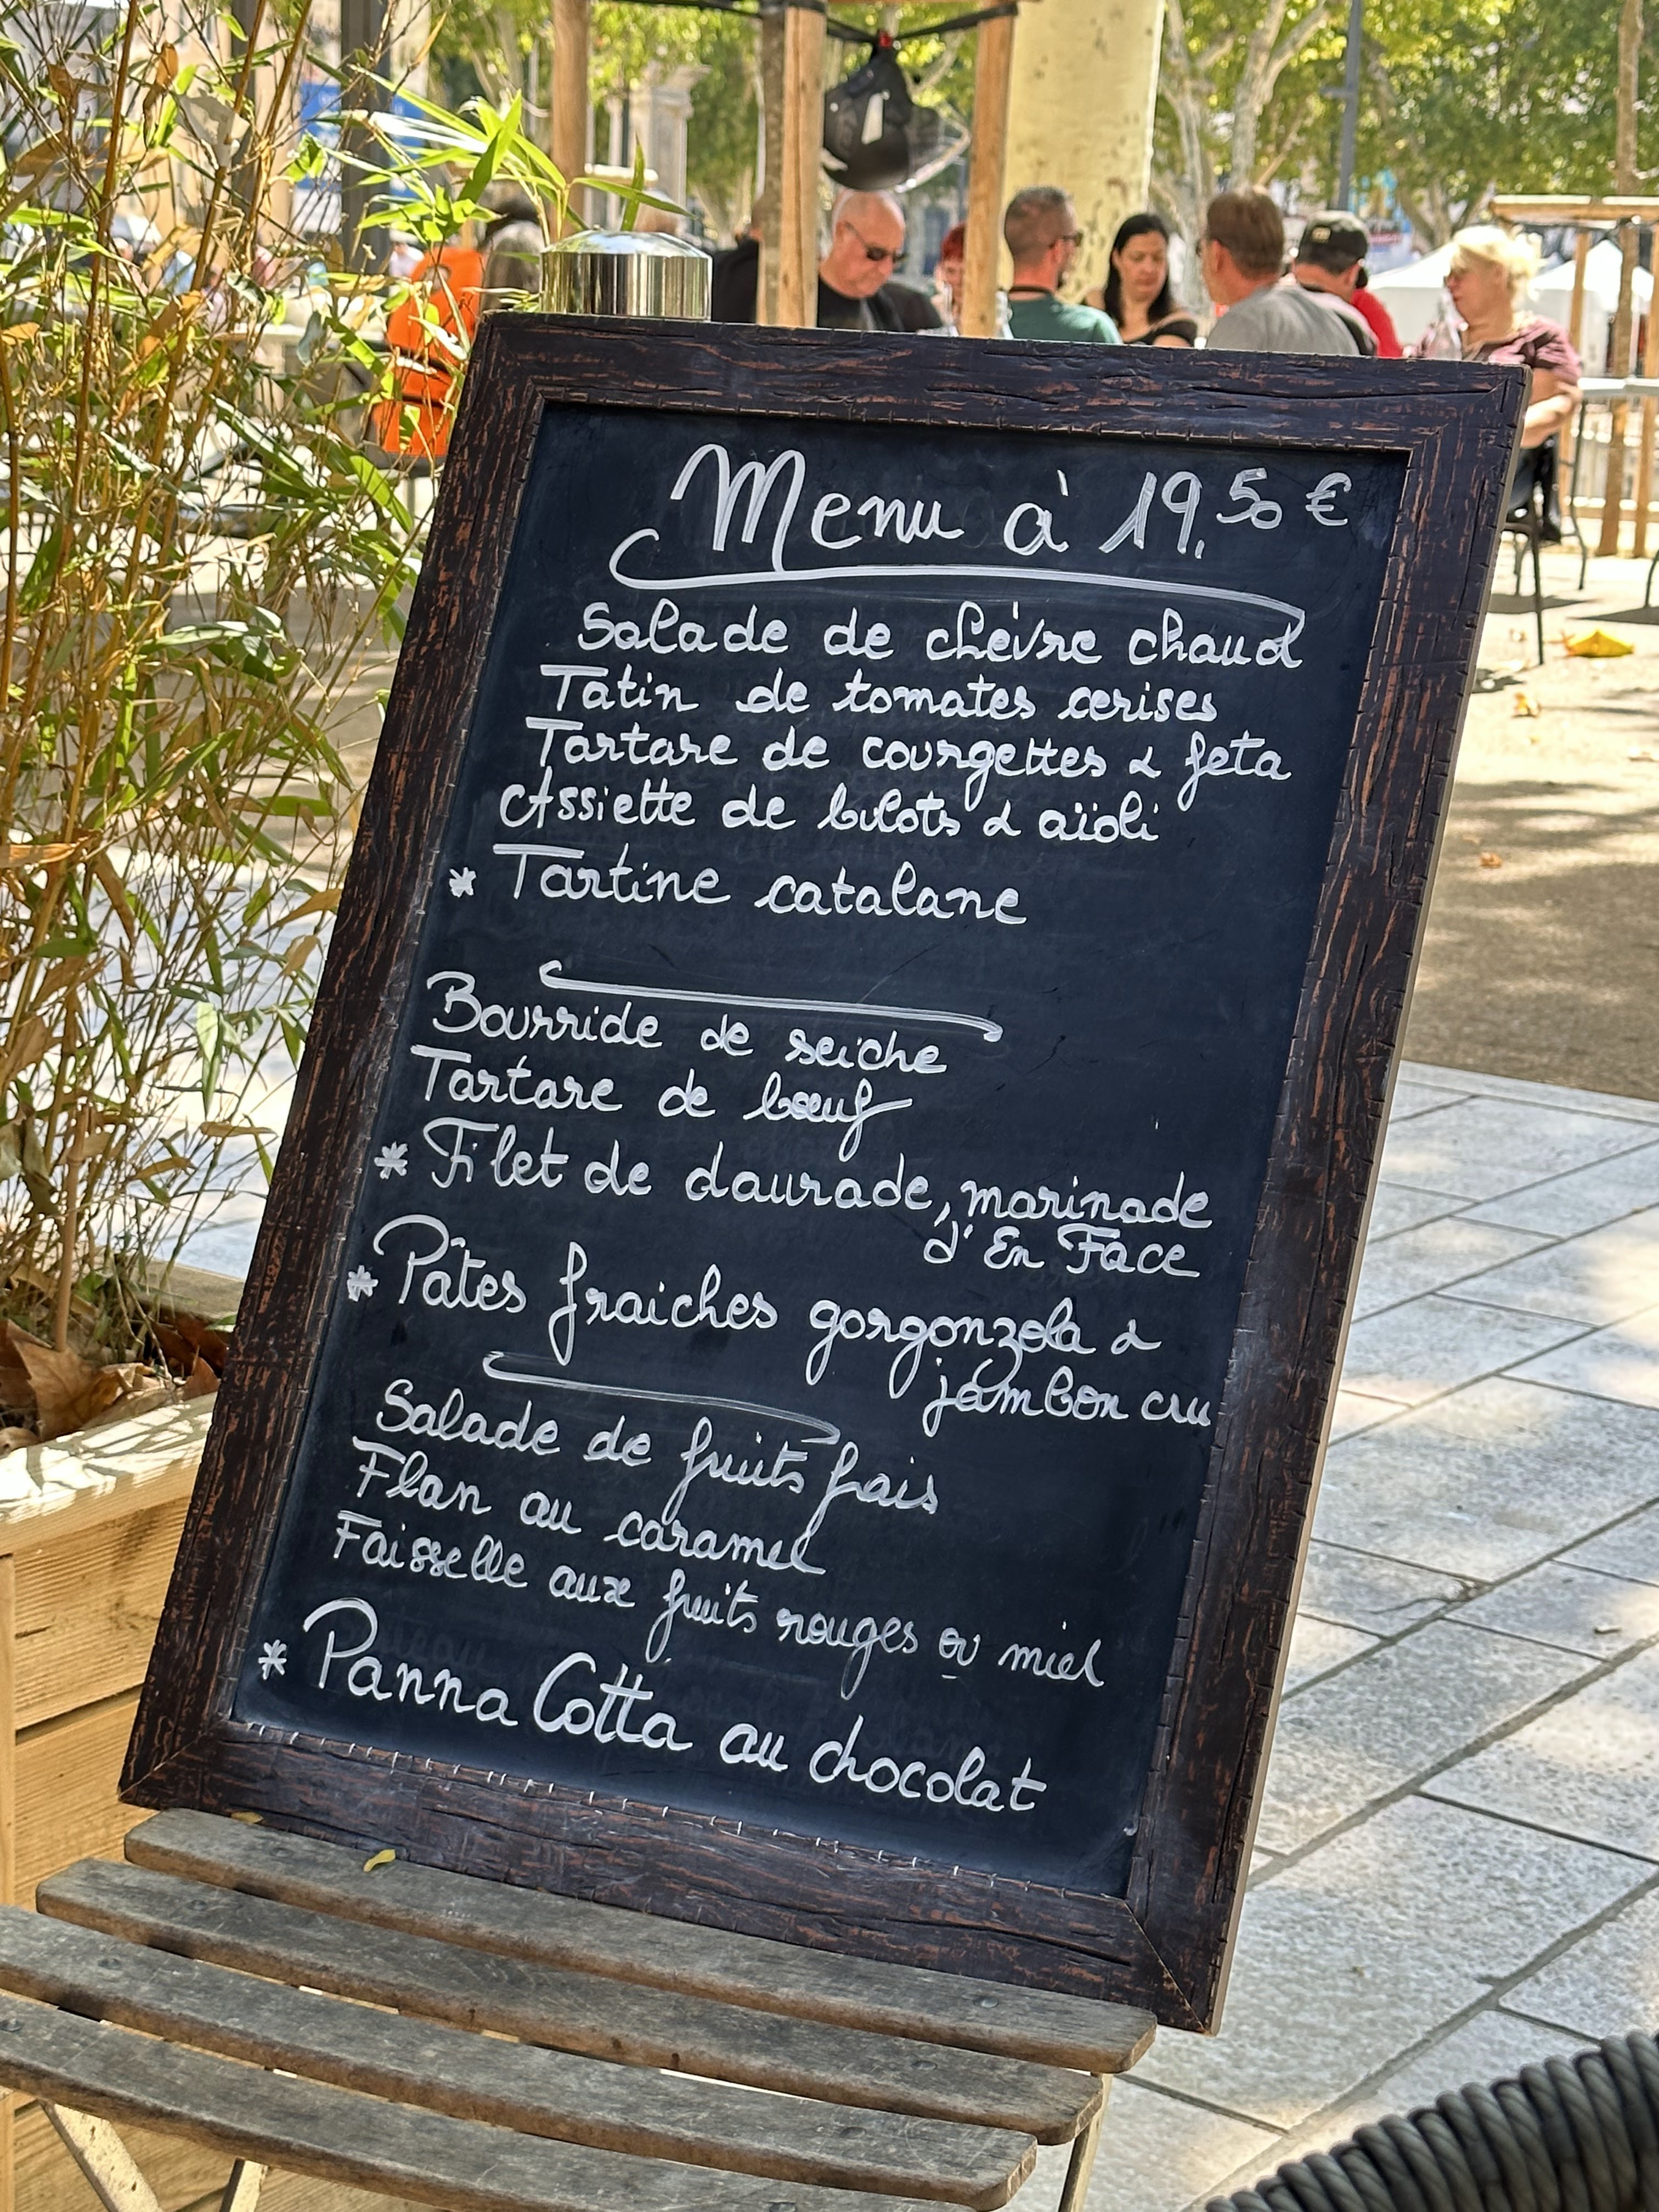 Menu à 19,50 €
Salade de chèvre chaud
Tatin de tomates cerises
Tartare de courgettes & feta
Assiette de bulots & aïoli
* Tartine catalane
Bourride de seiche
Tartare de bœuf
* Filet de daurade, marinade
d'En Face
* Pâtes fraiches gorgonzola &
jambon cru
Salade de fruits frais
Flan au caramel
Faisselle aux fruits rouges ou miel
* Panna Cotta au chocolat